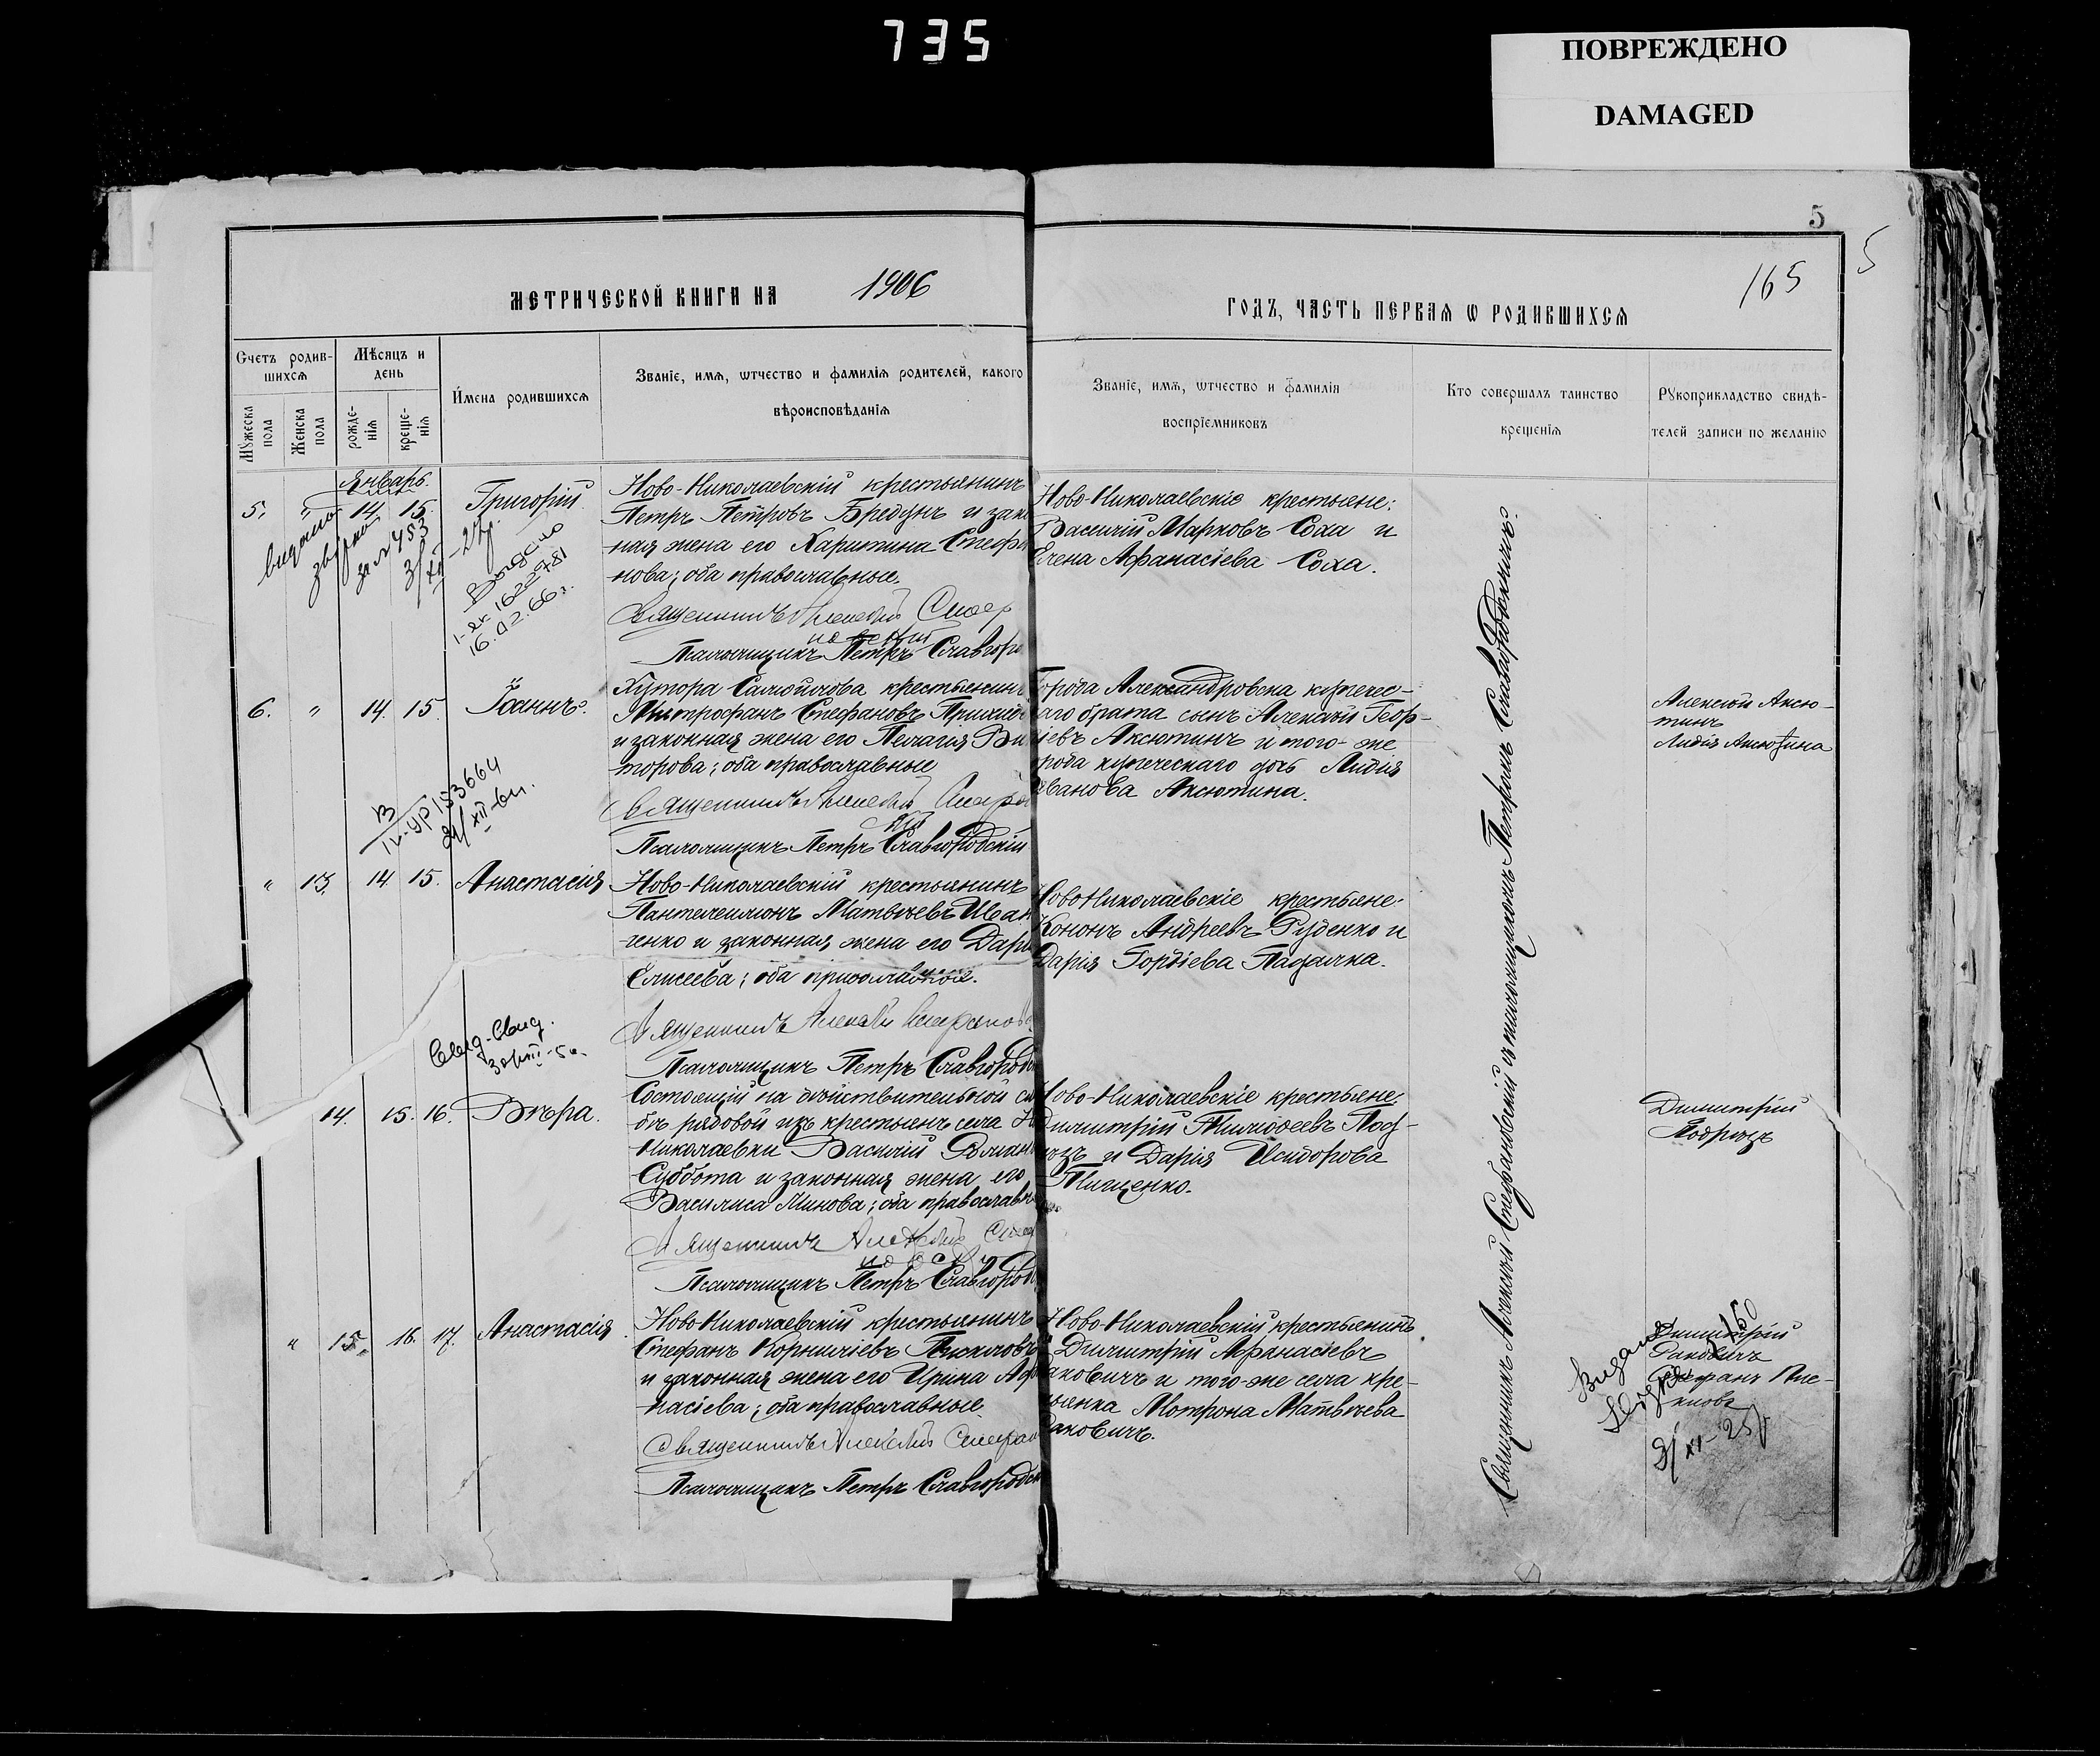 735
ПОВРЕЖДЕНО
DAMAGED
5
5
165
МЕТРИЧЕСКОЙ КНИГИ НА 1906
ГОДЪ, ЧАСТЬ ПЕРВАѦ Ѡ РОДИВШИХСѦ
Счетъ родив-
шихсѧ
Мѣсяцъ и
день
Мужеска
пола
Женска
пола
рожде-
нія
креще-
нія
Имена родившихсѧ
Званіе, имѧ, ѿчество и фамиліѧ родителей, какого
вѣроисповѣданіѧ
Званіе, имѧ, ѿчество и фамиліѧ
воспріемниковъ
Кто совершалъ таинство
крещеніѧ
Рукоприкладство свидѣ-
телей записи по желанію
Январь.
5. " 14. 15. Григорій
Ново-Николаевскій крестьянинъ
Петръ Петровъ Бредунъ и зако
ная жена его Харитина Стефа
нова; оба православные.
Священникъ Алексѣй
Псаломщикъ Петръ Славгоро
Ново-Николаевскіе крестьяне:
Василій Марковъ Соха и
Елена Афанасіева Соха.
за № 483
Выдано
1622781
16.02.66г.
6. " 14. 15. Іоаннъ.
Хутора крестьянинъ
Митрофанъ Стефановъ
и законная жена его Пелагія Ви
торова; оба православные
Священникъ Алексѣй
Псаломщикъ Петръ Славгородскій
Города Александровска купечес-
каго брата сынъ Алексѣй Геор-
гіевъ Аксютинъ и того-же
города купеческаго дочь Лидія
Иванова Аксютина.
Алексѣй Аксю-
тинъ
Лидія Аксютина
153664
" 13. 14. 15. Анастасія
Ново-Николаевскій крестьянинъ
Пантелеимонъ Матвѣевъ Иван
ченко и законная жена его Дарі
Елисеева; оба православные.
Священникъ Алексѣй
Псаломщикъ Петръ Славгород
Ново-Николаевскіе крестьяне:
Кононъ Андреевъ Руденко и
Дарія Гордіева Падалка.
14. 15. 16. Вѣра.
Состоящій на дѣйствительной сл
бѣ рядовой изъ крестьянъ села Н
Николаевки Василій
Суббота и законная жена его
Василиса Минова; оба православн
Священникъ Алексѣй
Псаломщикъ Петръ Славгород
Ново-Николаевскіе крестьяне:
Димитрій Тимофеевъ Под-
рѣзъ и Дарія Исидорова
Тищенко.
Димитрій
Подрѣзъ
" 15. 16. 17. Анастасія
Ново-Николаевскій крестьянинъ
Стефанъ Корниліевъ Пискловъ
и законная жена его Ирина Афа
насіева; оба православные.
Священникъ Алексѣй
Псаломщикъ Петръ Славгородск
Ново-Николаевскій крестьянинъ
Димитрій Афанасіевъ
Раковичъ и того-же села кре-
стьянка Мотрона Матвѣева
Раковичъ.
Димитрій
Раковичъ
Стефанъ Пис-
кловъ
Священникъ Алексѣй Стефановскій съ псаломщикомъ Петромъ Славгородскимъ.